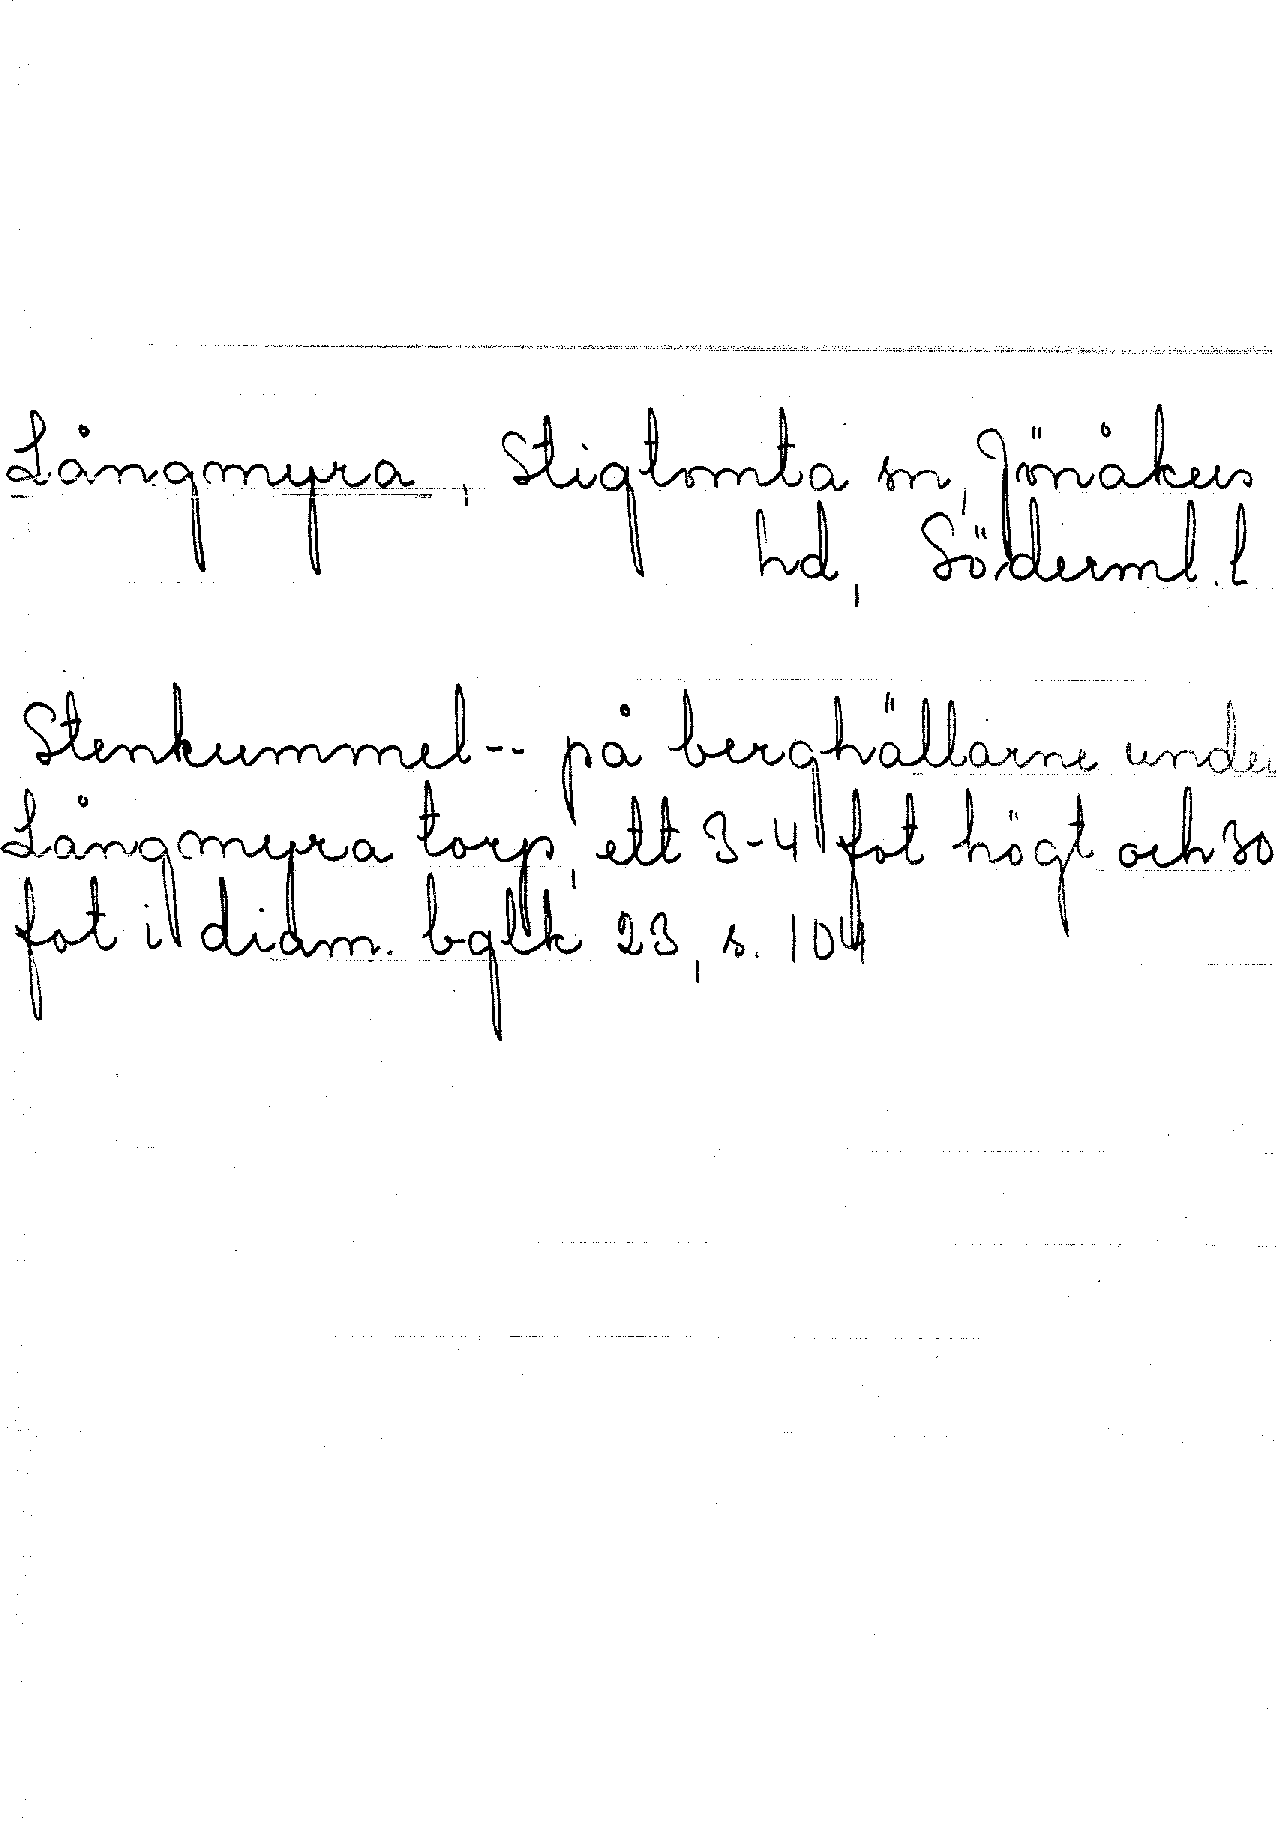 Långmyra, Stigtomta sn, Jönåkers
hd, Söderml. l
Stenkummel -- på berghällarne under
Långmyra torp, ett 3-4 fot högt och 30
fot i diam. bglk 23, s. 104